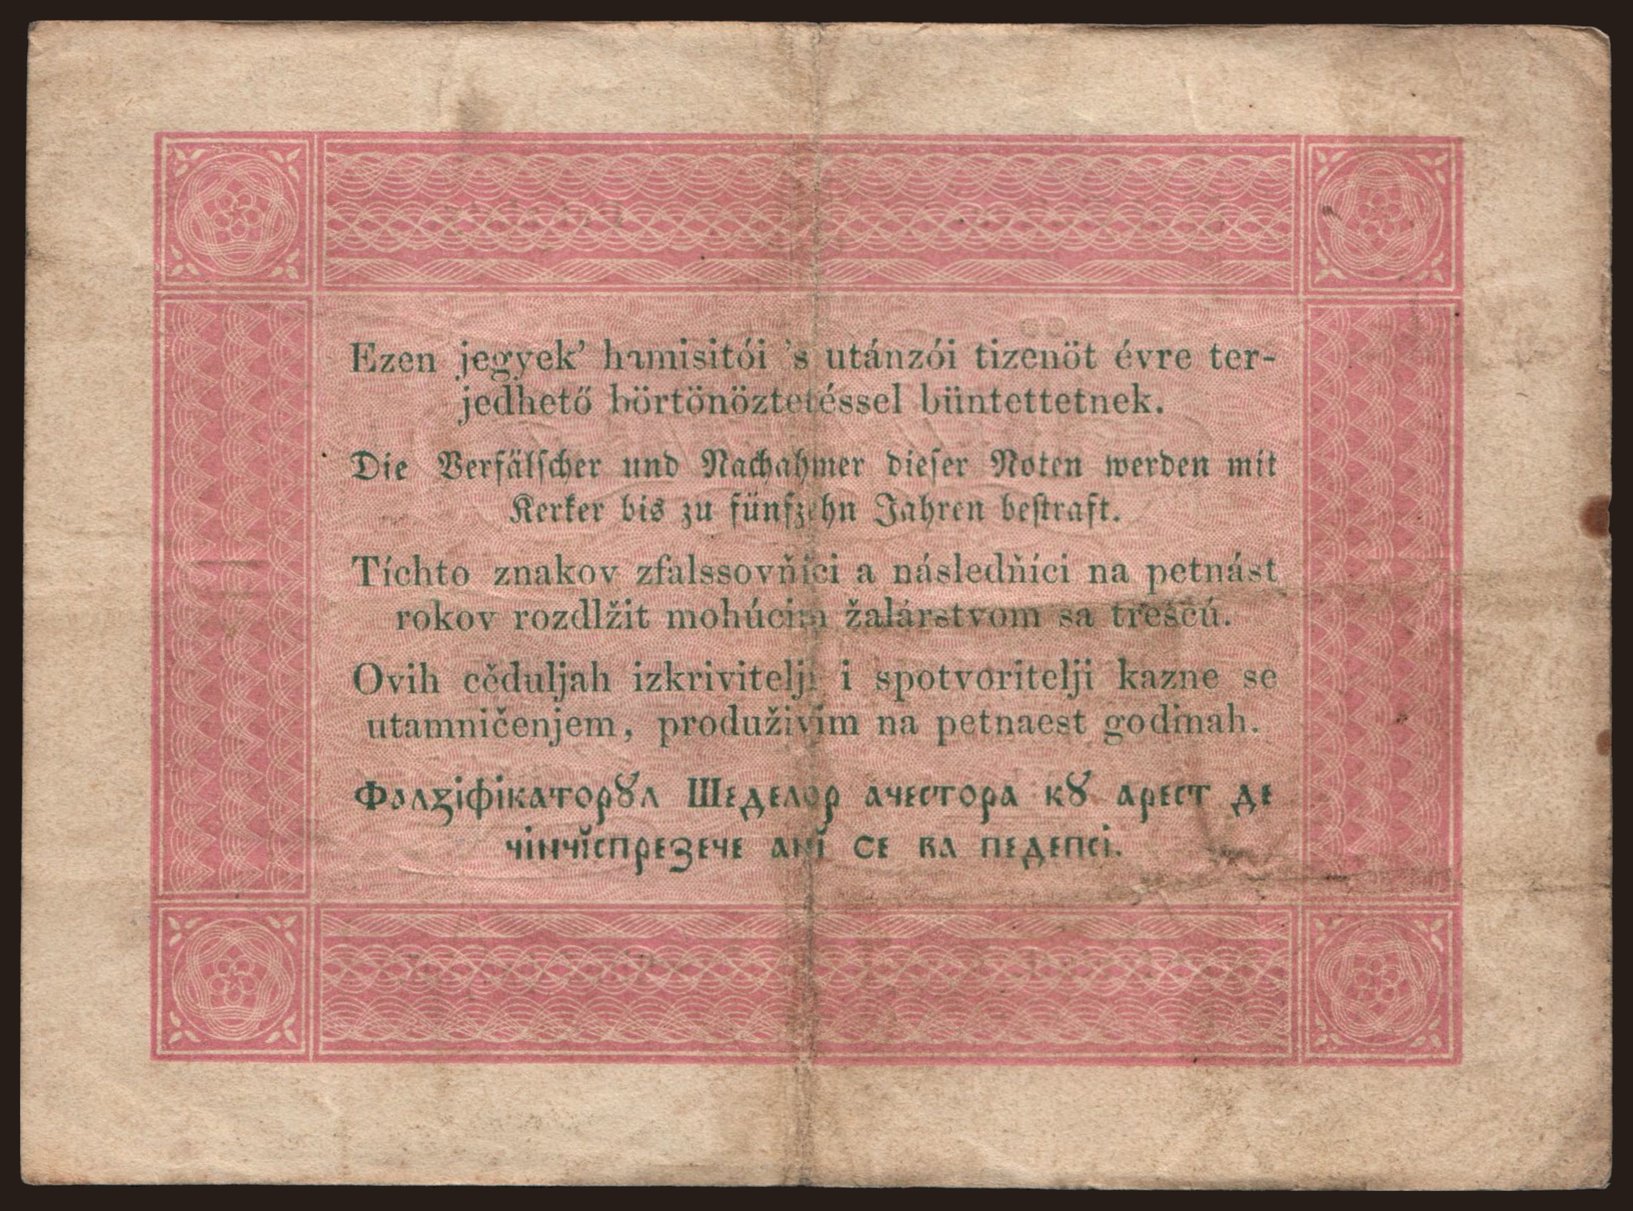 Ezen jegyek’ hamisitói ’s utánzói tizenöt évre ter-
jedhető börtönöztetéssel büntettetnek.
Die Verfälscher und Nachahmer dieser Noten werden mit
Kerker bis zu fünfzehn Jahren bestraft.
Tíchto znakov zfalssovňíci a následňíci na petnást
rokov rozdlžit mohúcim žalárstvom sa trescú.
Ovih cěduljah izkrivitelji i spotvoritelji kazne se
utamničenjem, produživim na petnaest godinah.
Фалꙁіфікаторꙋл Шеделор ачестора кꙋ арест де
чінчĭспреꙁече ані се ва педепсі.